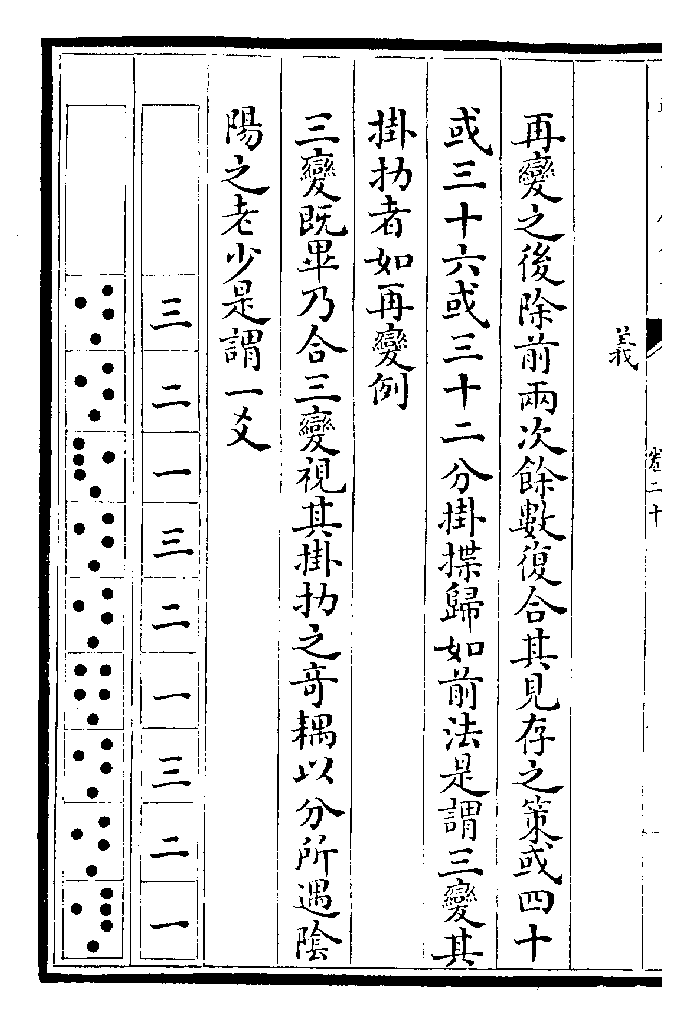 義
卷二十
再變之後除前兩次餘數復合其見存之策或四十
或三十六或三十二分掛揲歸如前法是謂三變其
掛扐者如再變例
三變既畢乃合三變視其掛扐之奇耦以分所遇陰
陽之老少是謂一爻
三
二
一
三
二
一
三
二
一